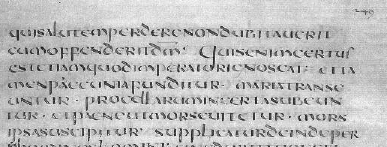 quisalutemperderenondubitauerit
cumoffenderitdm̄ Quisenimcertus
estetiamquodimperatorienoscat· etta
menpaecuniafunditur· mariatranse
untur· procellarumincertasubeun
tur· etpaeneutmorseuitetur· mors
ipsasuscipitur· supplicaturdeindeper